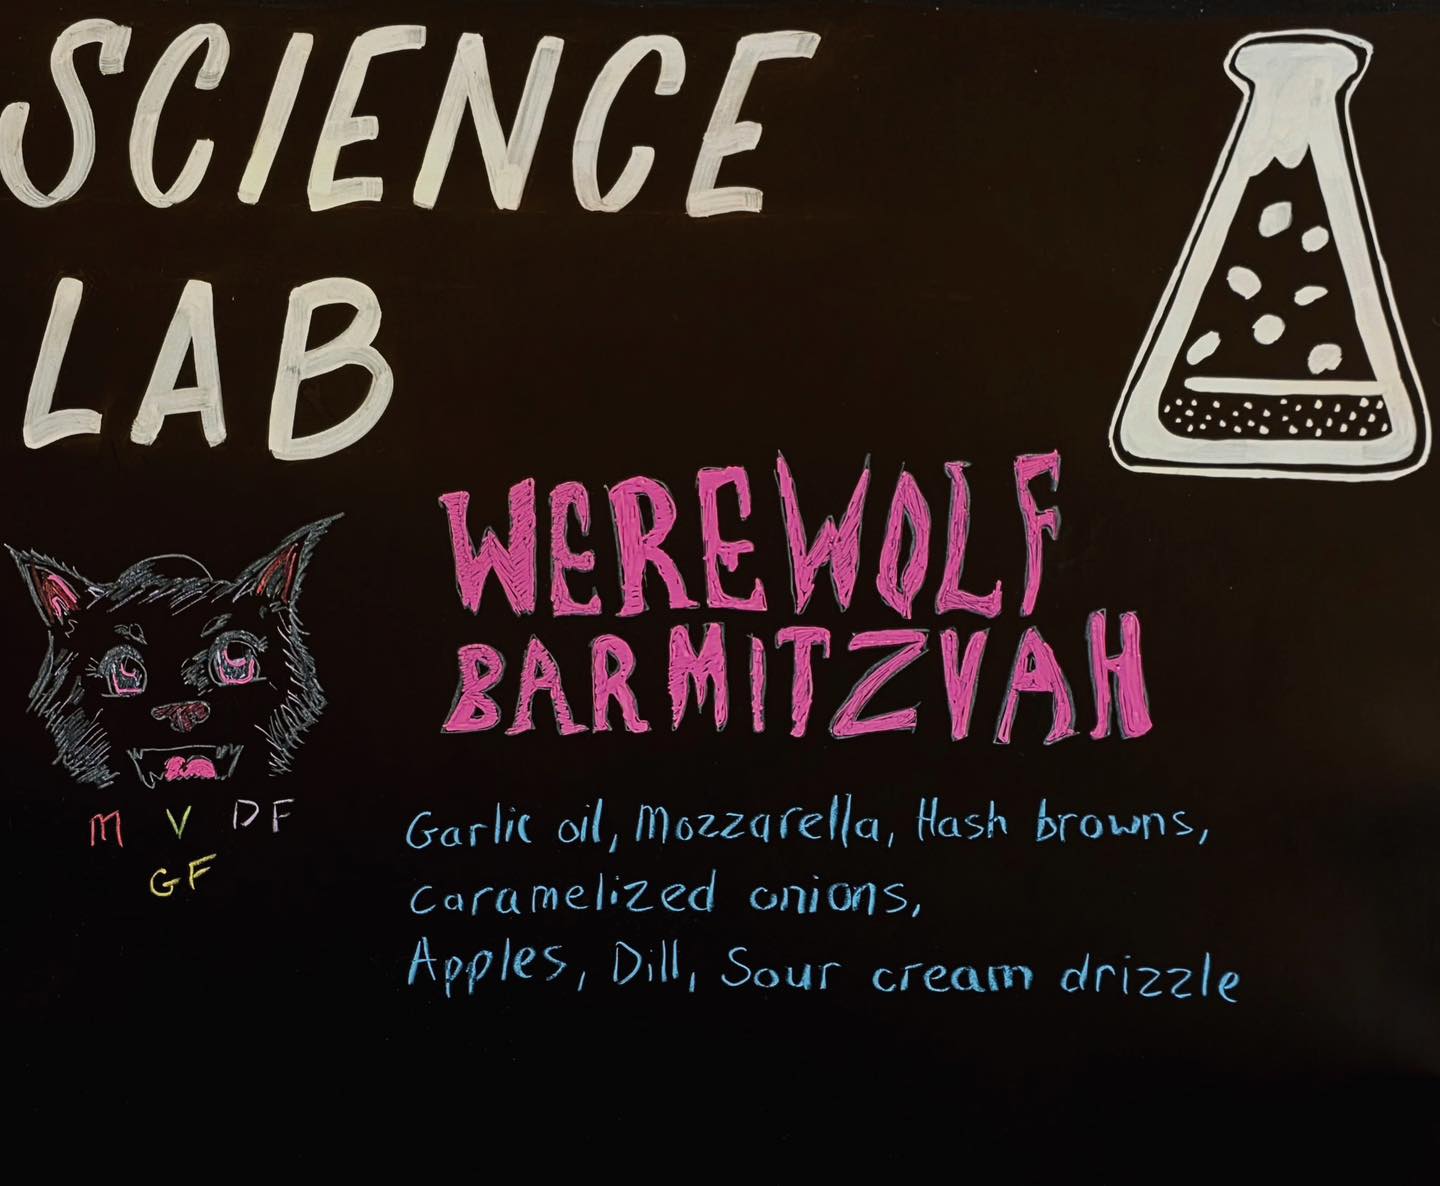 SCIENCE
LAB
WEREWOLF
BARMITZVAH
M V DF
GF
Garlic oil, Mozzarella, Hash browns,
caramelized onions,
Apples, Dill, Sour cream drizzle